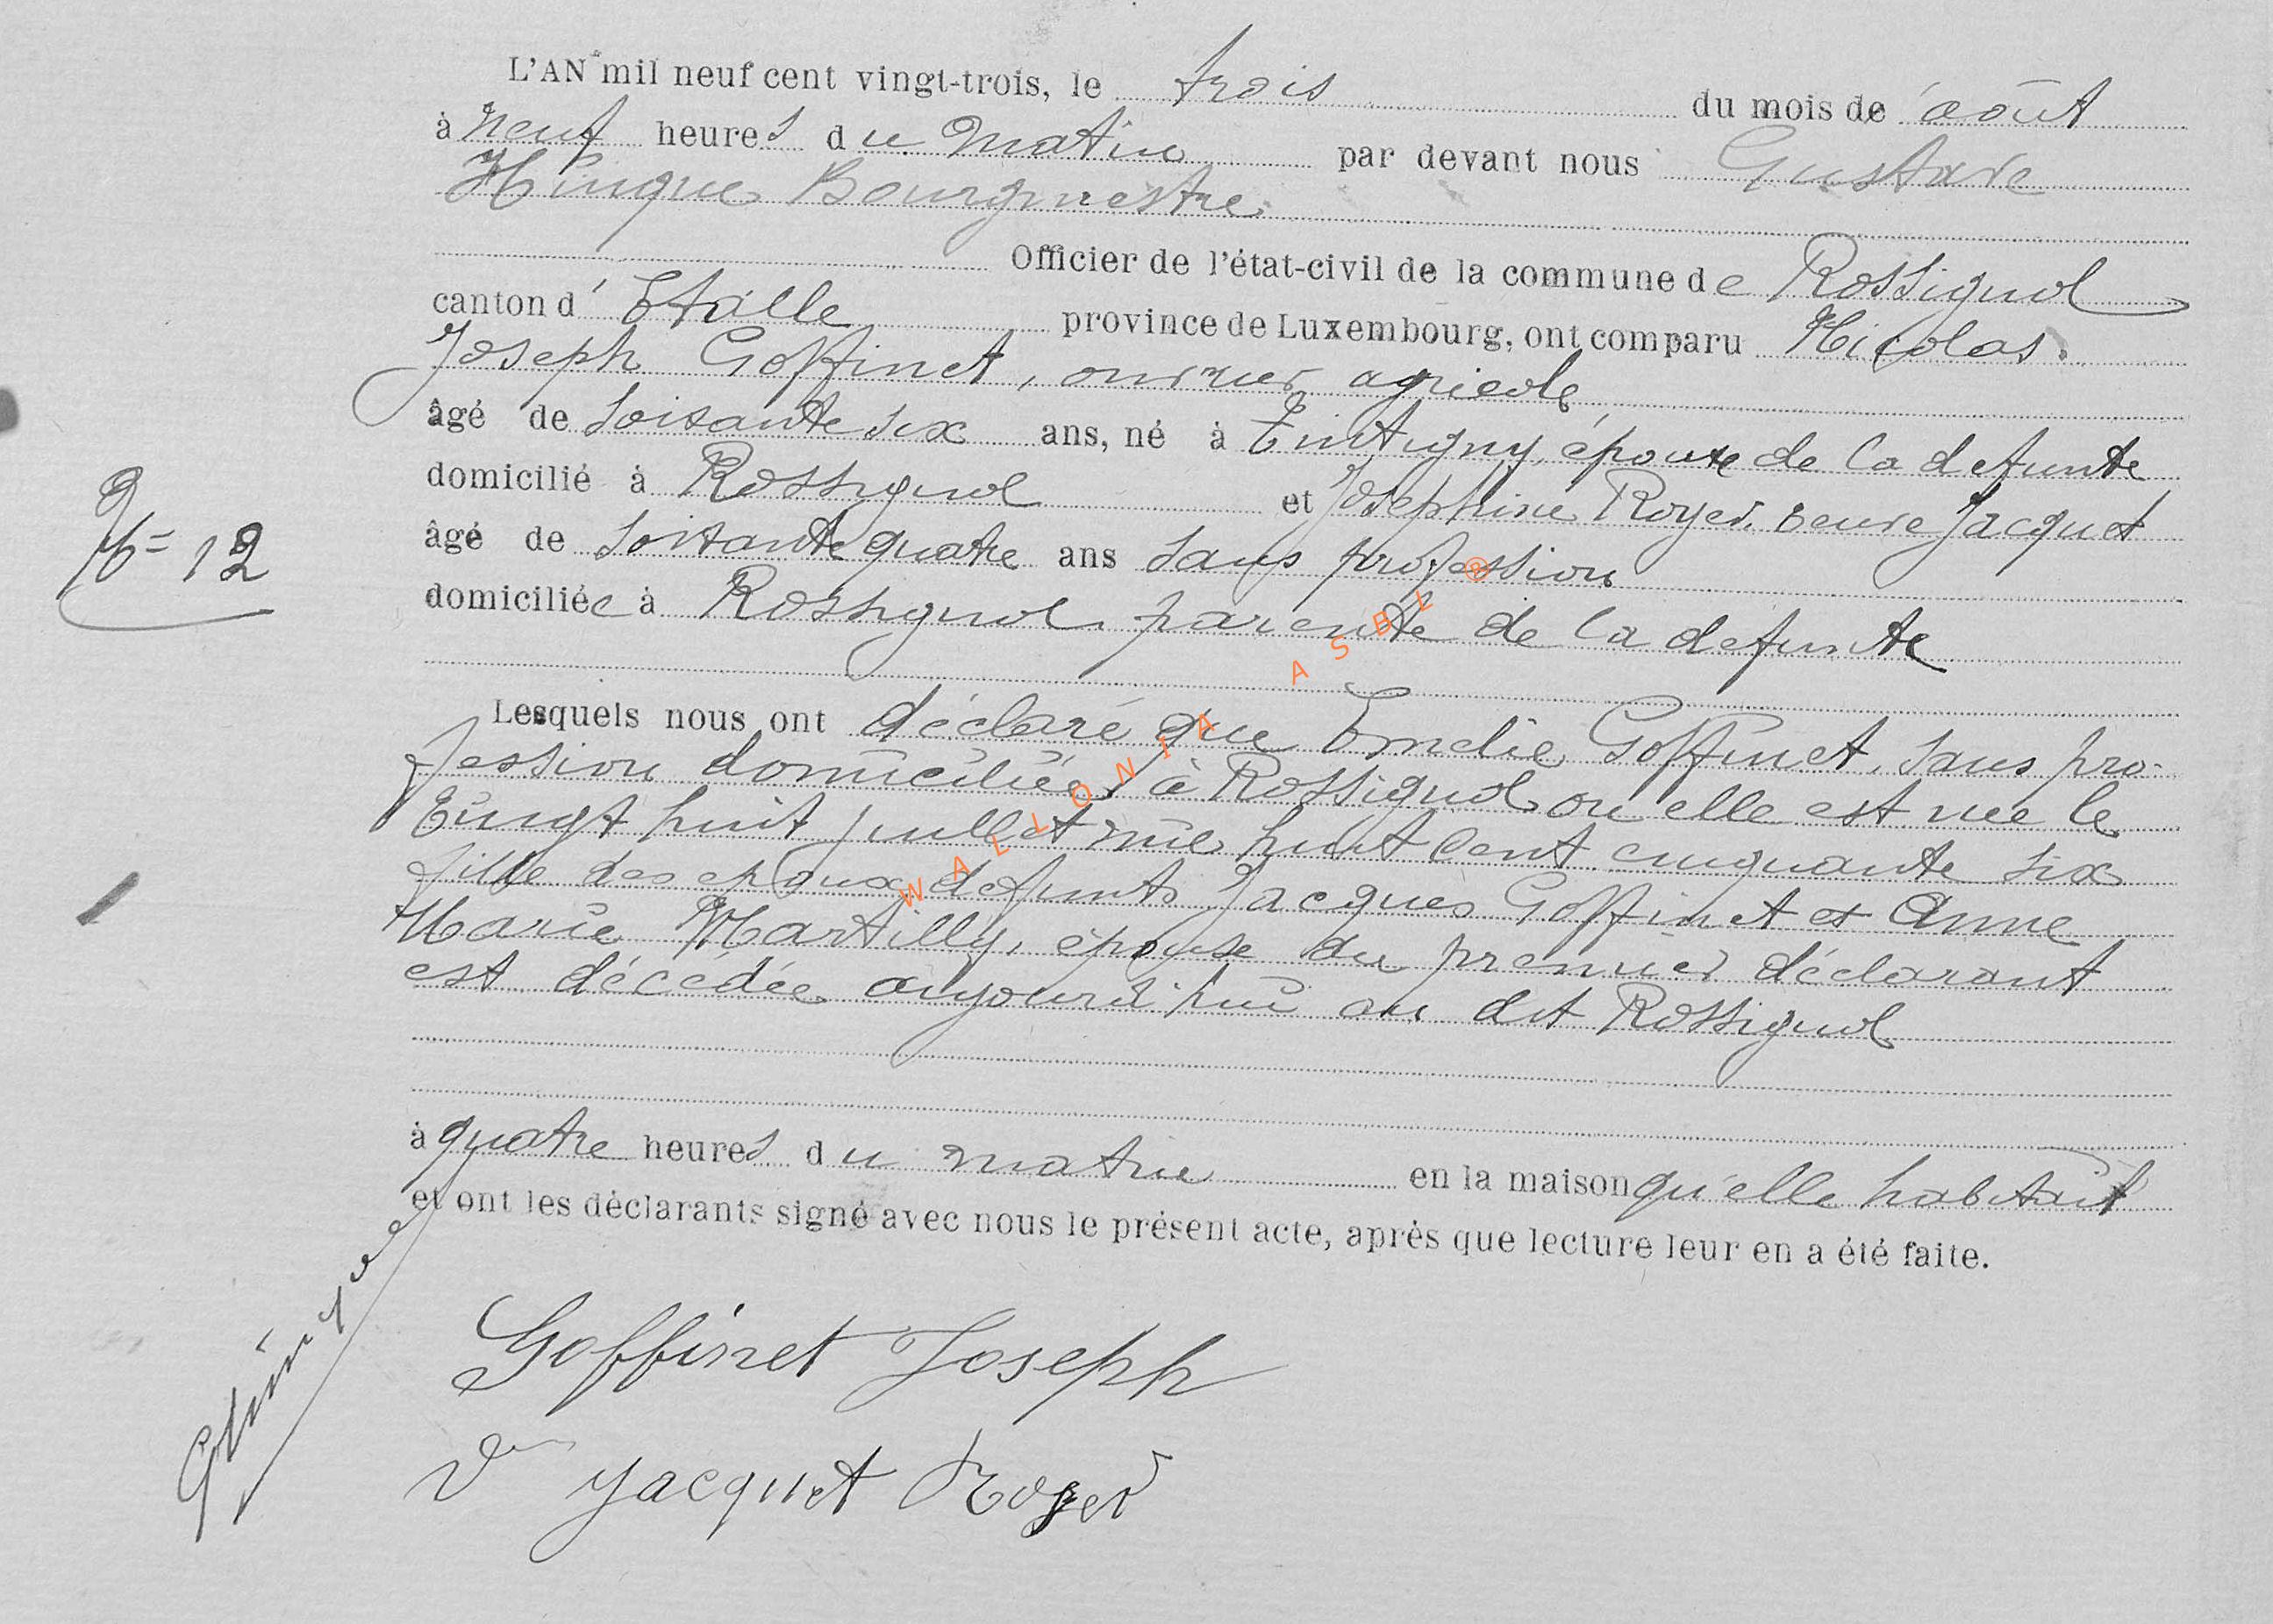 L'AN mil neuf cent vingt-trois, le trois du mois de août
à neuf heures du Matin par devant nous Gustave
Hinque Bourgmestre
Officier de l'état-civil de la commune de Rossignol
canton d' Etalle province de Luxembourg, ont comparu Nicolas
Joseph Goffinet, ouvrier agricole
âgé de soixante six ans, né à Tintigny, époux de la defunte
domicilié à Rossignol et Josephine Royer veuve Jacquet
âgé de soixante quatre ans sans profession
domiciliée à Rossignol parente de la defunte
N° 12
Lesquels nous ont déclaré que Emelie Goffinet, sans pro-
fession domiciliée à Rossignol ou elle est née le
Vingt huit juillet mil huit cent cinquante six
fille des epoux defunts Jacques Goffinet et Anne
Marie Martilly, épouse du premier déclarant
est décédée aujourd'hui au dit Rossignol
à quatre heures du matin en la maison qu'elle habitait
et ont les déclarants signé avec nous le présent acte, après que lecture leur en a été faite.
Goffinet Joseph
Ve Jacquet Royer
WALLONIA ASBL ®